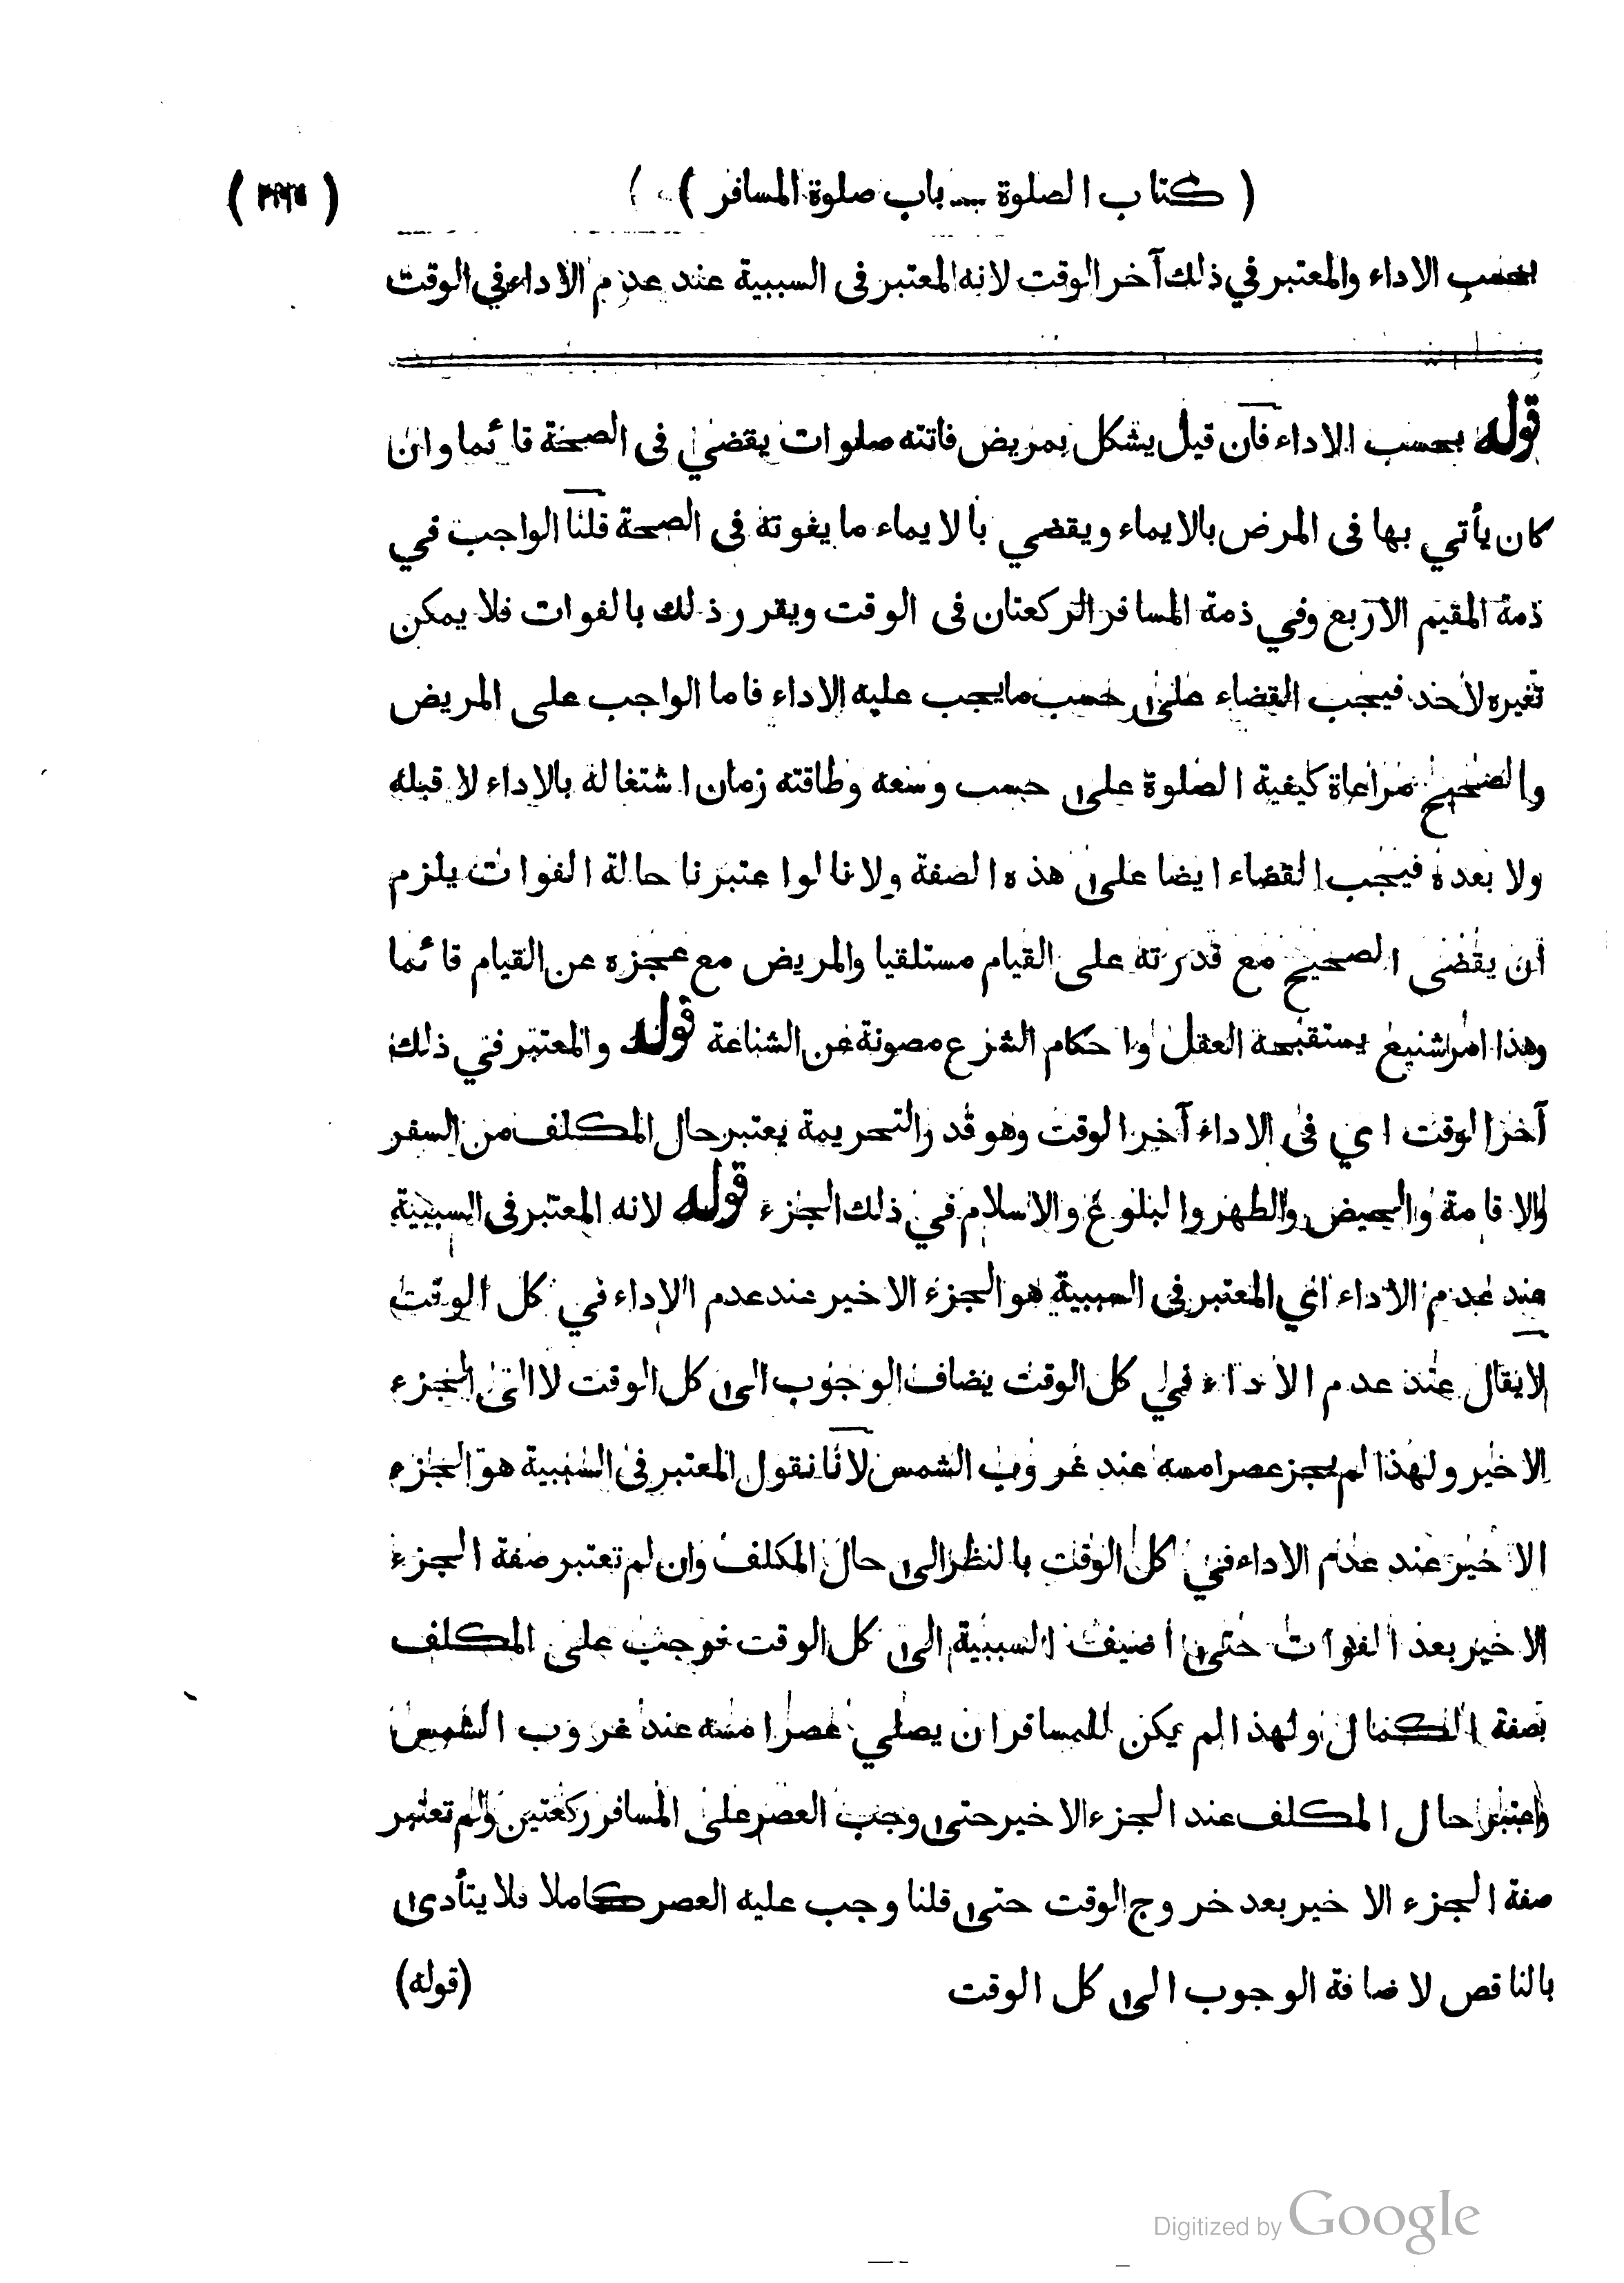 ( كتاب الصلوة — باب صلوة المسافر )
بحسب الاداء والمعتبر في ذلك آخر الوقت لانه المعتبر فى السببية عند عدم الاداء في الوقت
قوله بحسب الاداء فان قيل يشكل بمريض فاتته صلوات يقضي فى الصحة قائما وان
كان يأتي بها فى المرض بالايماء ويقضي بالايماء ما يفوته فى الصحة قلنا الواجب في
ذمة المقيم الاربع وفي ذمة المسافر الركعتان فى الوقت ويقرر ذلك بالفوات فلا يمكن
تغيره لاحد فيجب القضاء على حسب مايجب عليه الاداء فاما الواجب على المريض
والصحيح مراعاة كيفية الصلوة على حسب وسعه وطاقته زمان اشتغاله بالاداء لا قبله
ولا بعده فيجب القضاء ايضا على هذه الصفة ولانا لو اعتبرنا حالة الفوات يلزم
ان يقضى الصحيح مع قدرته على القيام مستلقيا والمريض مع عجزه عن القيام قائما
وهذا امر شنيع يستقبحه العقل واحكام الشرع مصونة عن الشناعة قوله والمعتبر في ذلك
آخر الوقت اي فى الاداء آخر الوقت وهو قدر التحريمة يعتبر حال المكلف من السفر
والاقامة والحيض والطهر والبلوغ والاسلام في ذلك الجزء قوله لانه المعتبر فى السببية
عند عدم الاداء اي المعتبر فى السببية هو الجزء الاخير عند عدم الاداء في كل الوقت
لايقال عند عدم الاداء في كل الوقت يضاف الوجوب الى كل الوقت لا الى الجزء
الاخير ولهذا لم يجز عصر امسه عند غروب الشمس لانا نقول المعتبر فى السببية هو الجزء
الاخير عند عدم الاداء في كل الوقت بالنظر الى حال المكلف وان لم تعتبر صفة الجزء
الاخير بعد الفوات حتى اضيفت السببية الى كل الوقت فوجب على المكلف
بصفة الكمال ولهذا لم يمكن للمسافر ان يصلي عصر امسه عند غروب الشمس
واعتبر حال المكلف عند الجزء الاخير حتى وجب العصر على المسافر ركعتين ولم تعتبر
صفة الجزء الاخير بعد خروج الوقت حتى قلنا وجب عليه العصر كاملا فلا يتأدى
بالناقص لاضافة الوجوب الى كل الوقت (قوله)
Digitized by Google